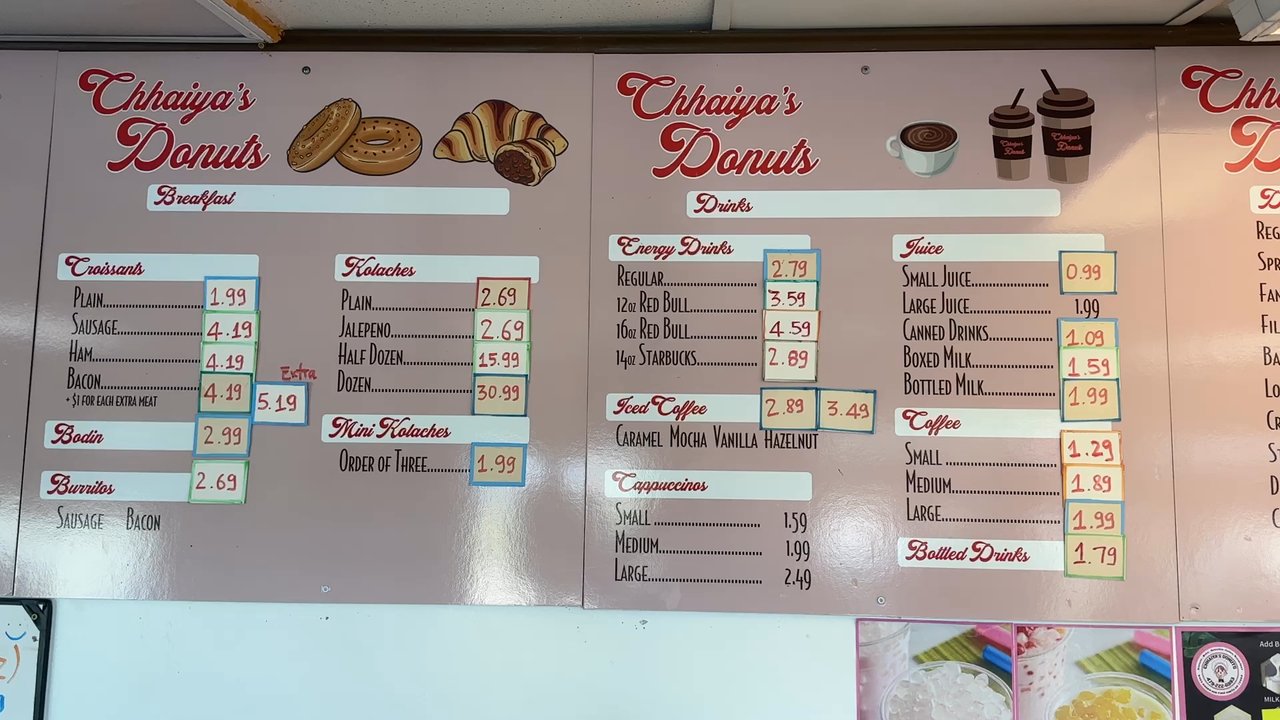 Chhaiya's
Donuts
Breakfast
Croissants
PLAIN 1.99
SAUSAGE 4.19
HAM 4.19
BACON 4.19 Extra 5.19
+ $1 FOR EACH EXTRA MEAT
Bodin 2.99
Burritos 2.69
SAUSAGE BACON
Kolaches
PLAIN 2.69
JALEPENO 2.69
HALF DOZEN 15.99
DOZEN 30.99
Mini Kolaches
ORDER OF THREE 1.99
Chhaiya's
Donuts
Chhaiya's
Donuts
Chhaiya's
Donuts
Drinks
Energy Drinks
REGULAR 2.79
12oz RED BULL 3.59
16oz RED BULL 4.59
14oz STARBUCKS 2.89
Iced Coffee 2.89 3.49
CARAMEL MOCHA VANILLA HAZELNUT
Cappuccinos
SMALL 1.59
MEDIUM 1.99
LARGE 2.49
Juice
SMALL JUICE 0.99
LARGE JUICE 1.99
CANNED DRINKS 1.09
BOXED MILK 1.59
BOTTLED MILK 1.99
Coffee
SMALL 1.29
MEDIUM 1.89
LARGE 1.99
Bottled Drinks 1.79
Chh
D
D
REG
SPR
FAN
FIL
BA
LO
CR
ST
D
Add B
MILK